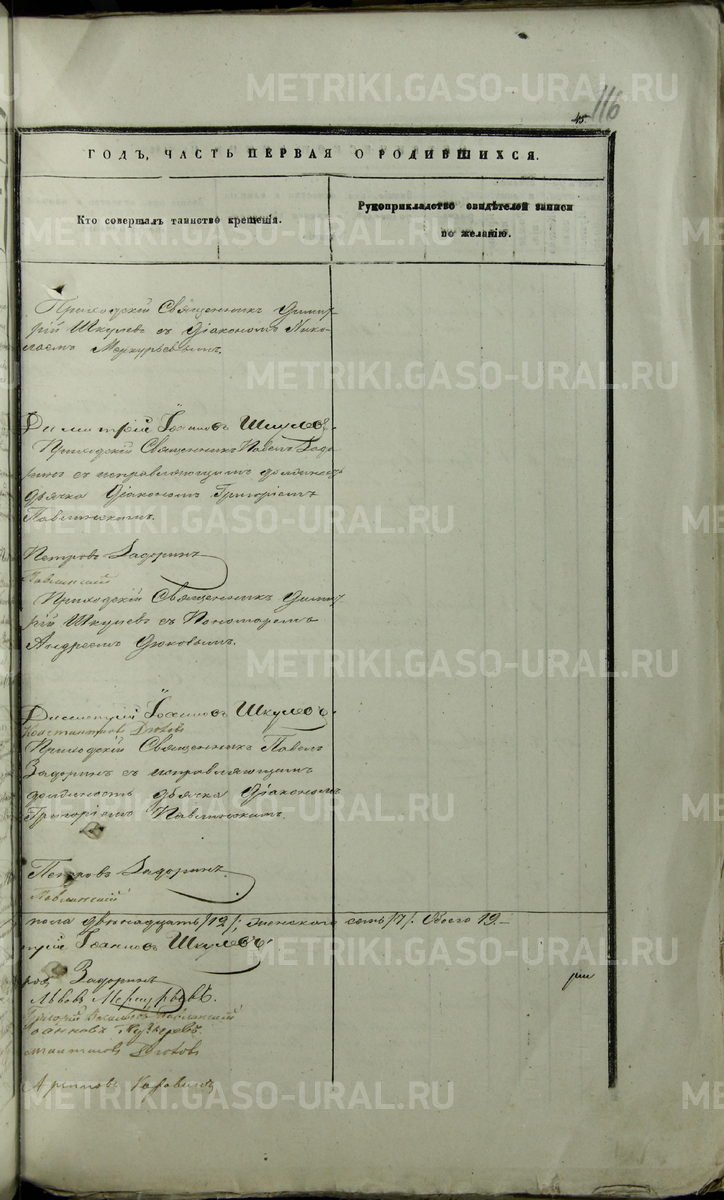 METRIKI.GASO-URAL.RU
116
45.
ГОДЪ, ЧАСТЬ ПЕРВАЯ О РОДИВШИХСЯ.
Кто совершалъ таинство крещенія.
Рукоприкладство свидѣтелей записи по желанію.
Приходскій Священникъ Димит-
рій Шкулевъ съ Діакономъ Нико-
лаемъ Меркурьевымъ.
Димитрій Іоанновъ Шкулевъ.
Приходскій Священникъ Павелъ Задо-
ринъ съ исправляющимъ должность
дьячка Діакономъ Григоріемъ
Павлинскимъ.
Петровъ Задоринъ
Павлинскій
Приходскій Священникъ Димит-
рій Шкулевъ съ Пономаремъ
Андреемъ
Димитрій Іоанновъ Шкулевъ.
Константиновъ
Приходскій Священникъ Павелъ
Задоринъ съ исправляющимъ
должность дьячка Діакономъ
Григоріемъ Павлинскимъ.
Петровъ Задоринъ.
Павлинскій
пола двѣнадцать /12/, женскаго семь /7/. Всего 19.
трій Іоанновъ Шкулевъ
ровъ Задоринъ
Львовъ Меркурьевъ.
Григорій Павлинскій
Іоанновъ